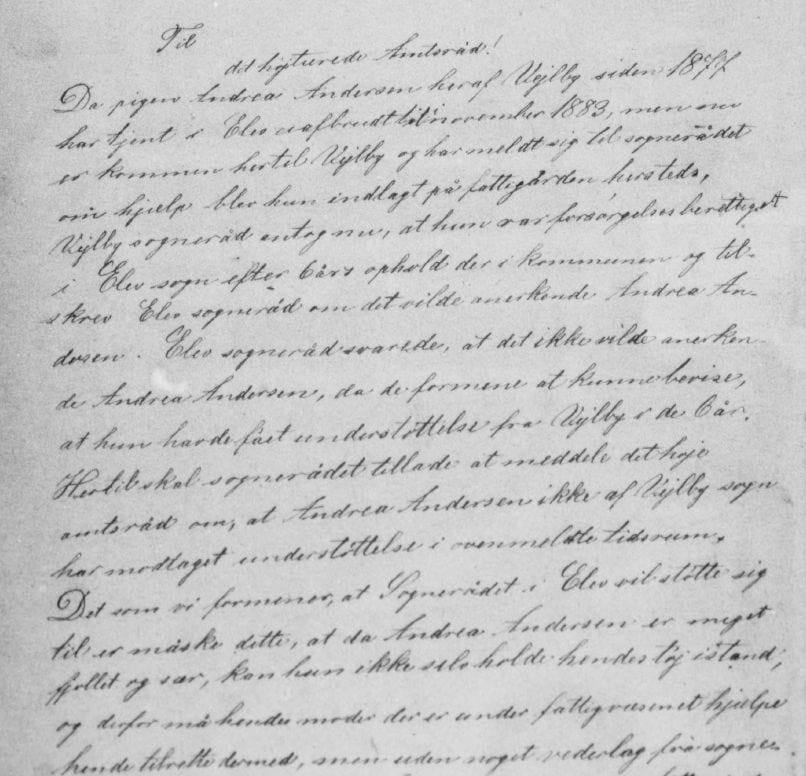 Til
det højtærede Amtsråd!
Da pigen Andrea Andersen heraf Vejlby siden 1877
har tjent i Elev uafbrudt til november 1883, men nu
er kommen hertil Vejlby og har meldt sig til sognerådet
om hjælp blev hun indlagt på fattigården hersteds,
Vejlby sogneråd antog nu, at hun var forsørgelsesberettiget
i Elev sogn efter 6 års ophold der i kommunen og til-
skrev Elev sogneråd om det vilde anerkende Andrea An-
dersen. Elev sogneråd svarede, at det ikke vilde anerken-
de Andrea Andersen, da de formene at kunne bevise,
at hun havde fået understøttelse fra Vejlby i de 6 år.
Hertil skal sognerådet tillade at meddele det høje
amtsråd om, at Andrea Andersen ikke af Vejlby sogn
har modtaget understøttelse i ovenmeldte tidsrum.
Det som vi formener, at Sognerådet i Elev vil støtte sig
til er måske dette, at da Andrea Andersen er meget
fjollet og sær, kan hun ikke selv holde hendes tøj istand,
og derfor må hendes moder der er under fattigvæsenet hjælpe
hende tilrette dermed, men uden noget vederlag fra sogne-